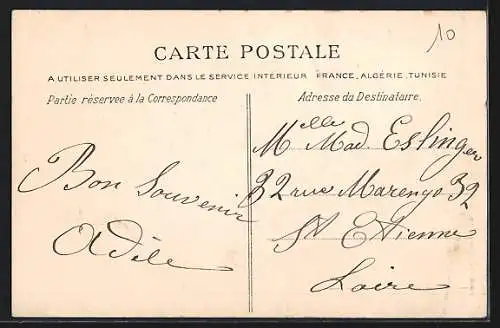 10
CARTE POSTALE
A UTILISER SEULEMENT DANS LE SERVICE INTÉRIEUR FRANCE, ALGÉRIE, TUNISIE
Partie réservée à la Correspondance
Adresse du Destinataire.
Bon Souvenir
Adèle
Melle Mad. Eslinger
32 rue Marengo 32
St Etienne
Loire